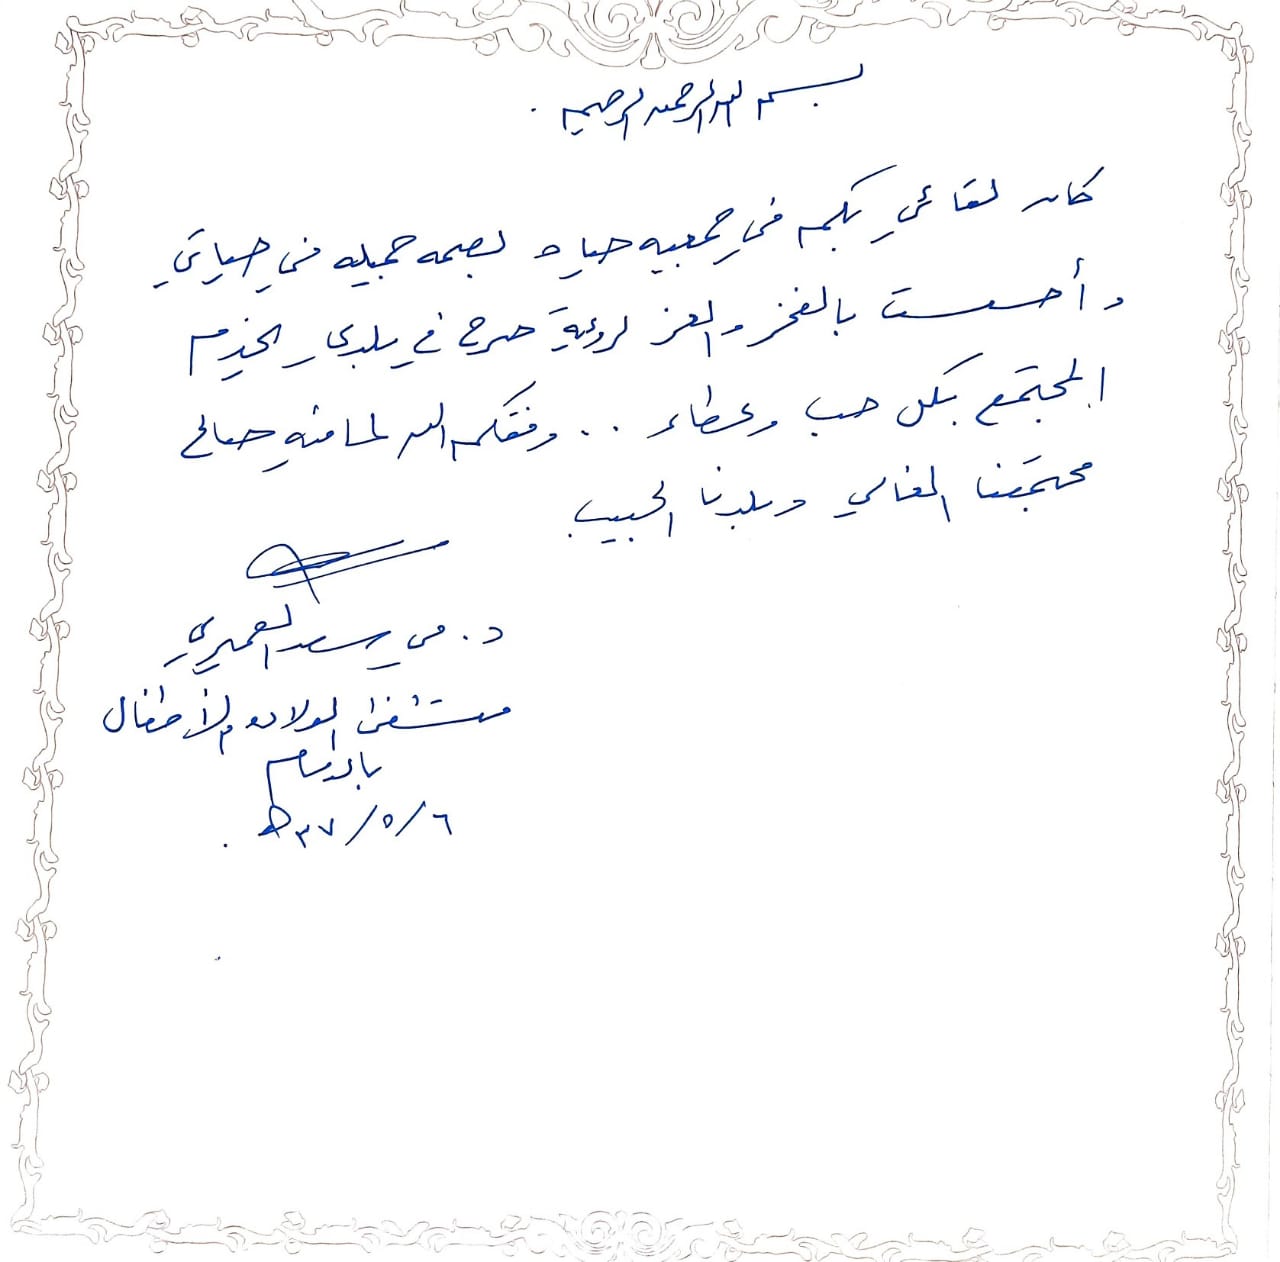 بسم الله الرحمن الرحيم .
كان لقائي بكم في جمعيه حياه بصمه جميله في حياتي
و أحسست بالفخر والعز لرؤية صرح في بلدي يخدم
المجتمع بكل حب وعطاء .. وفقكم الله لما فيه صالح
مجتمعنا الغالي وبلدنا الحبيب .
د . مي سعد العميري
مستشفى الولاده والأطفال
بالدمام
٦ / ٥ / ٣٧ هـ .